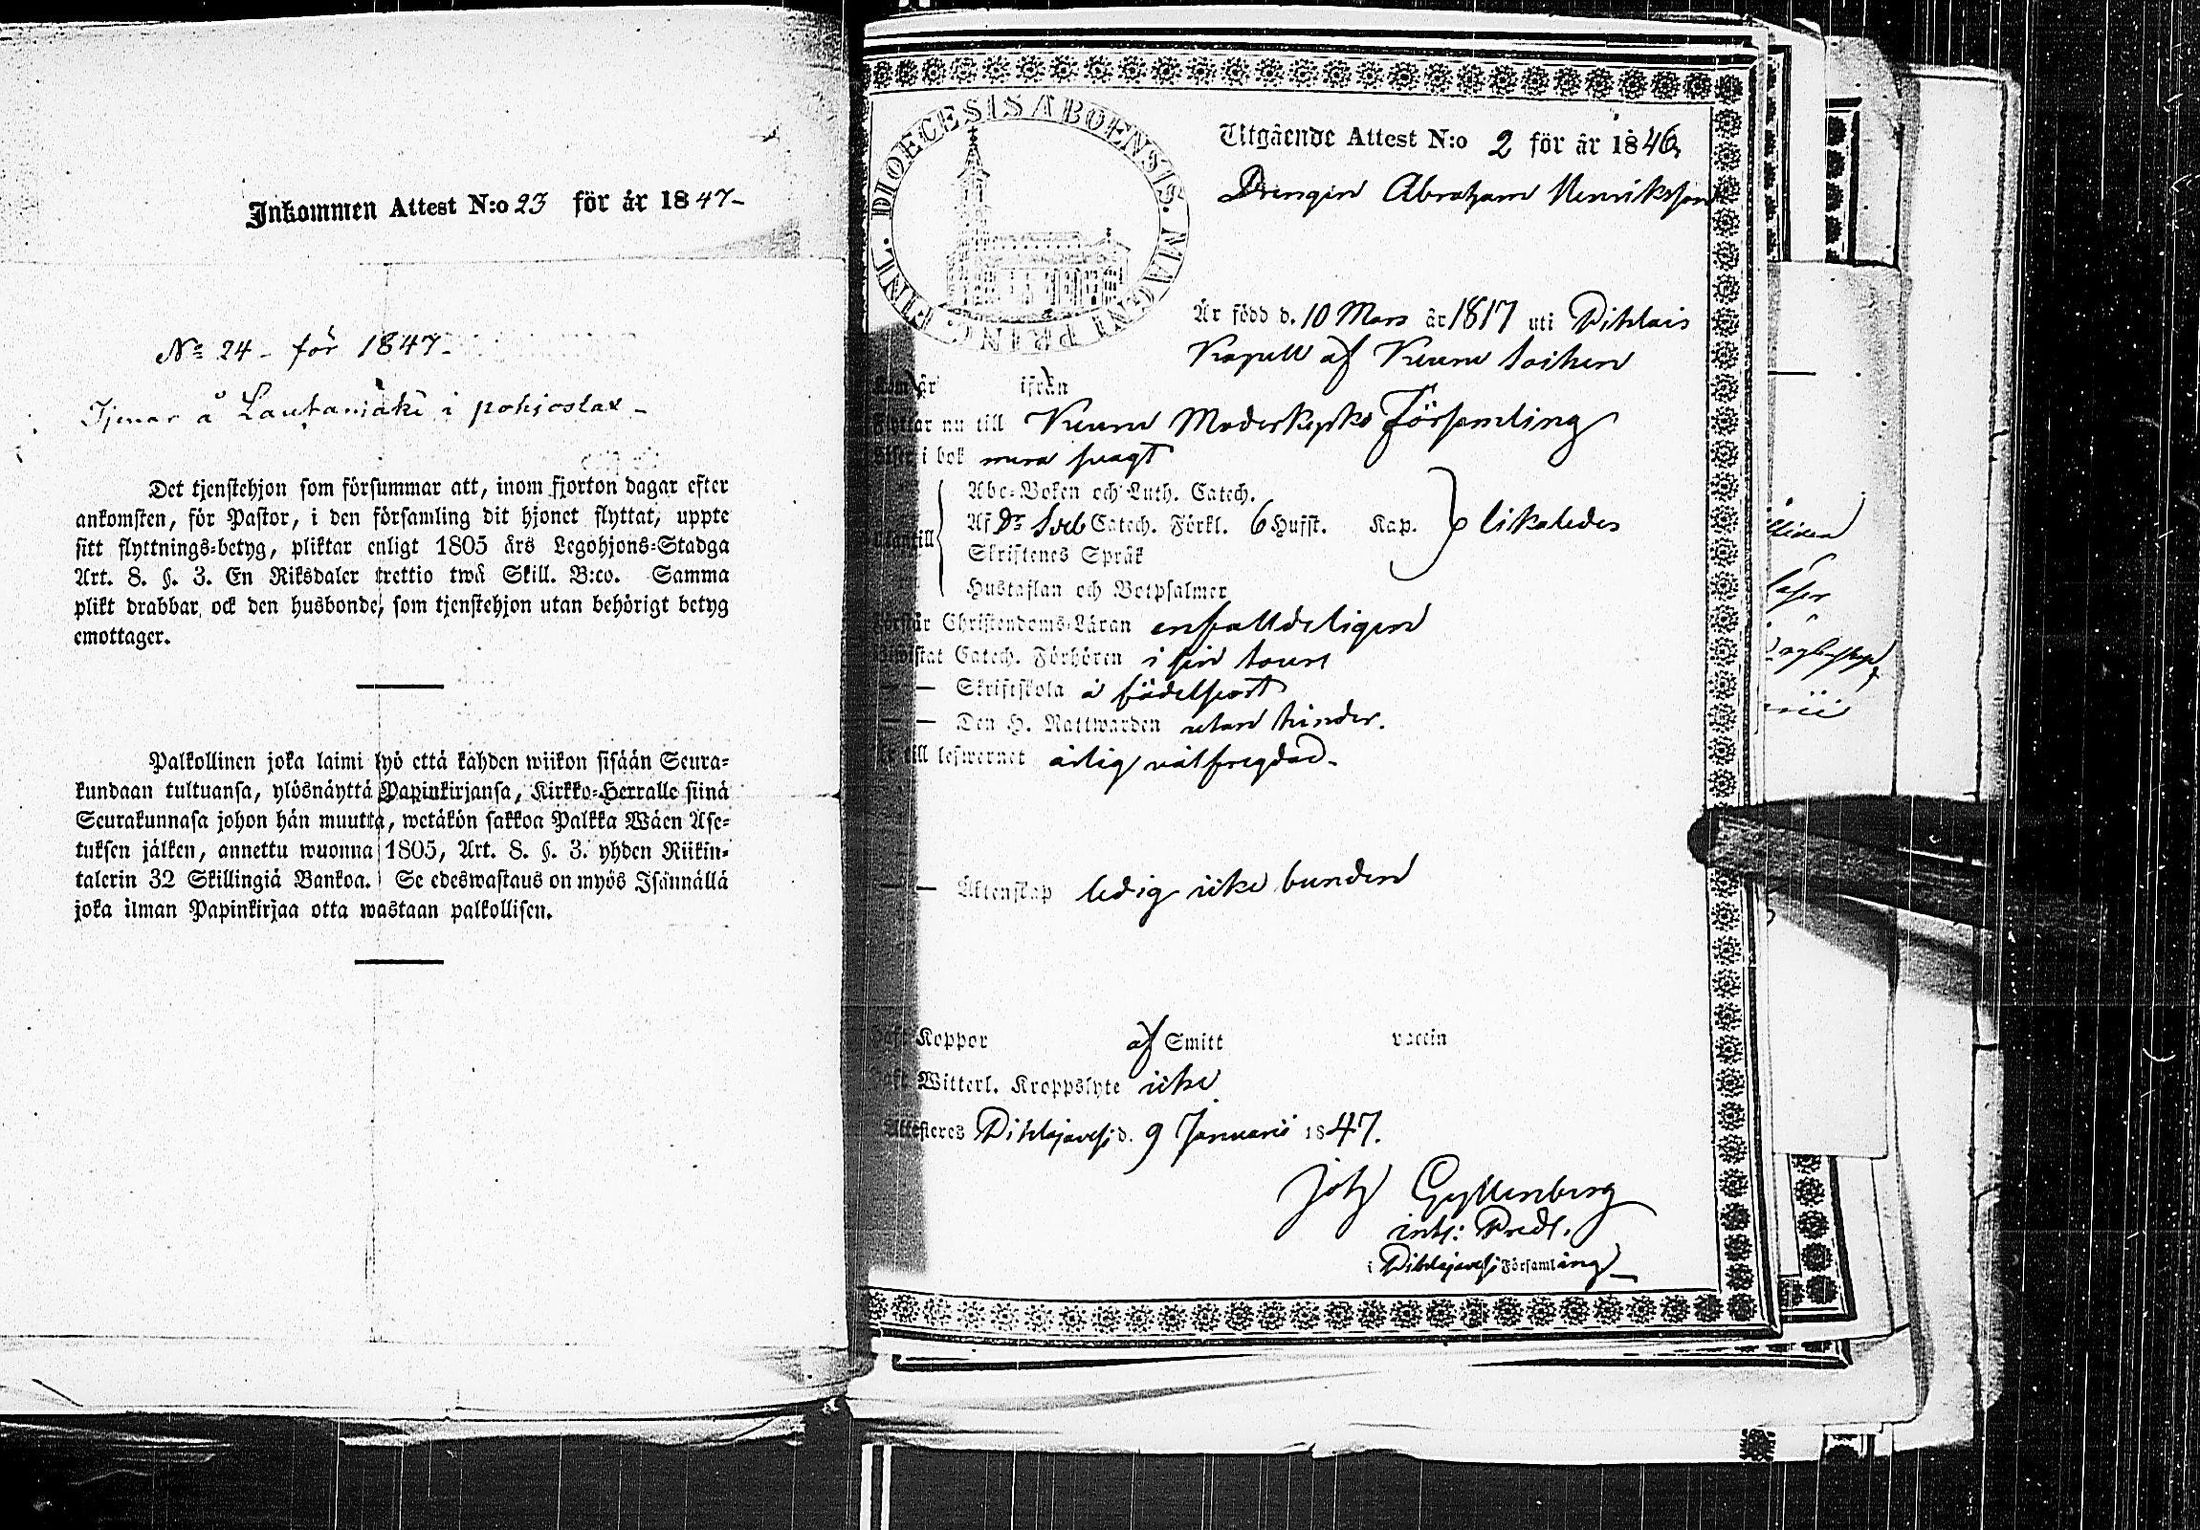 Inkommen Attest N:o 23 för år 1847-
No 24 - för 1847.
Tjenar å Lautamäki i pohjoslax -
Det tjenstehjon som försummar att, inom fjorton dagar efter
ankomsten, för Pastor, i den församling dit hjonet flyttat, uppte
sitt flyttnings-betyg, pliktar enligt 1805 års Legohjons-Stadga
Art. 8. §. 3. En Riksdaler trettio twå Skill. B:co. Samma
plikt drabbar ock den husbonde, som tjenstehjon utan behörigt betyg
emottager.
Palkollinen joka laimi lyö että kahden wiikon sisään Seura-
kundaan tultuansa, ylösnäyttä Papinkirjansa, Kirkko-Herralle siinä
Seurakunnasa johon hän muutta, wetäkön sakkoa Palkka Wäen Ase-
tuksen jälken, annettu wuonna 1805, Art. 8. §. 3. yhden Riikin-
talerin 32 Skillingiä Bankoa. Se edeswastaus on myös Isännällä
joka ilman Papinkirjaa otta wastaan palkollisen.
DIOECESIS ABOENSIS. MAGNI PRINC. FINL.
Utgående Attest N:o 2 för år 1846,
Drengen Abraham Henriksson
Är född d. 10 Mars år 1817 uti Pihlais
Kapell af Keuru Socken
ifrån
nu till Keuru Moderkyrko Församling
i bok svagt
Abc-Boken och Luth. Catech.
Af Dr Sveb Catech. Förkl. 6 Hufst. Kap. likaledes
Skriftenes Språk
Hustaflan och Botpsalmer
Förstår Christendoms-Läran enfalldeligen
Catech. Förhören i sin
— — Skriftskola å födelseort
— — Den H. Nattwarden utan hinder.
till lefwernet ärlig välfregdad-
— — Äktenskap ledig icke bunden
Koppor af Smitt vaccin
Witterl. Kroppslyte icke
Attesteres Pihlajavesi d. 9 Januarii 1847.
Joh Gyllenberg
Pred.
i Pihlajavesi Församling